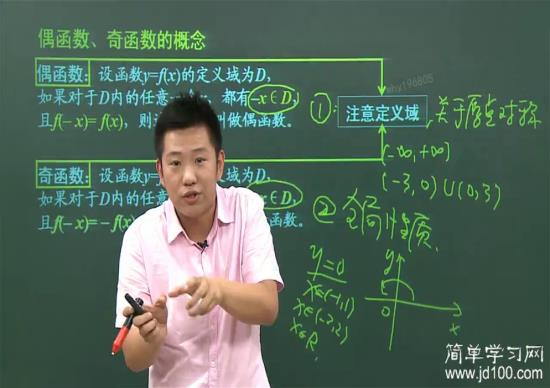 偶函数、奇函数的概念
偶函数：设函数y=f(x)的定义域为D，
如果对于D内的任意一 都有-x∈D，
且f(-x)=f(x)，则 叫做偶函数。
奇函数：设函数y= 定义域为D，
如果对于D内的任意 -x∈D，
且f(-x)=-f(x) 函数。
why196805
①：注意定义域，关于原点对称
(-∞,+∞)
(-3,0)∪(0,3)
② 全局性质.
y=0
x∈(-1,1)
x∈(-2,2)
x∈R,
y
0
x
简单学习网
www.jd100.com